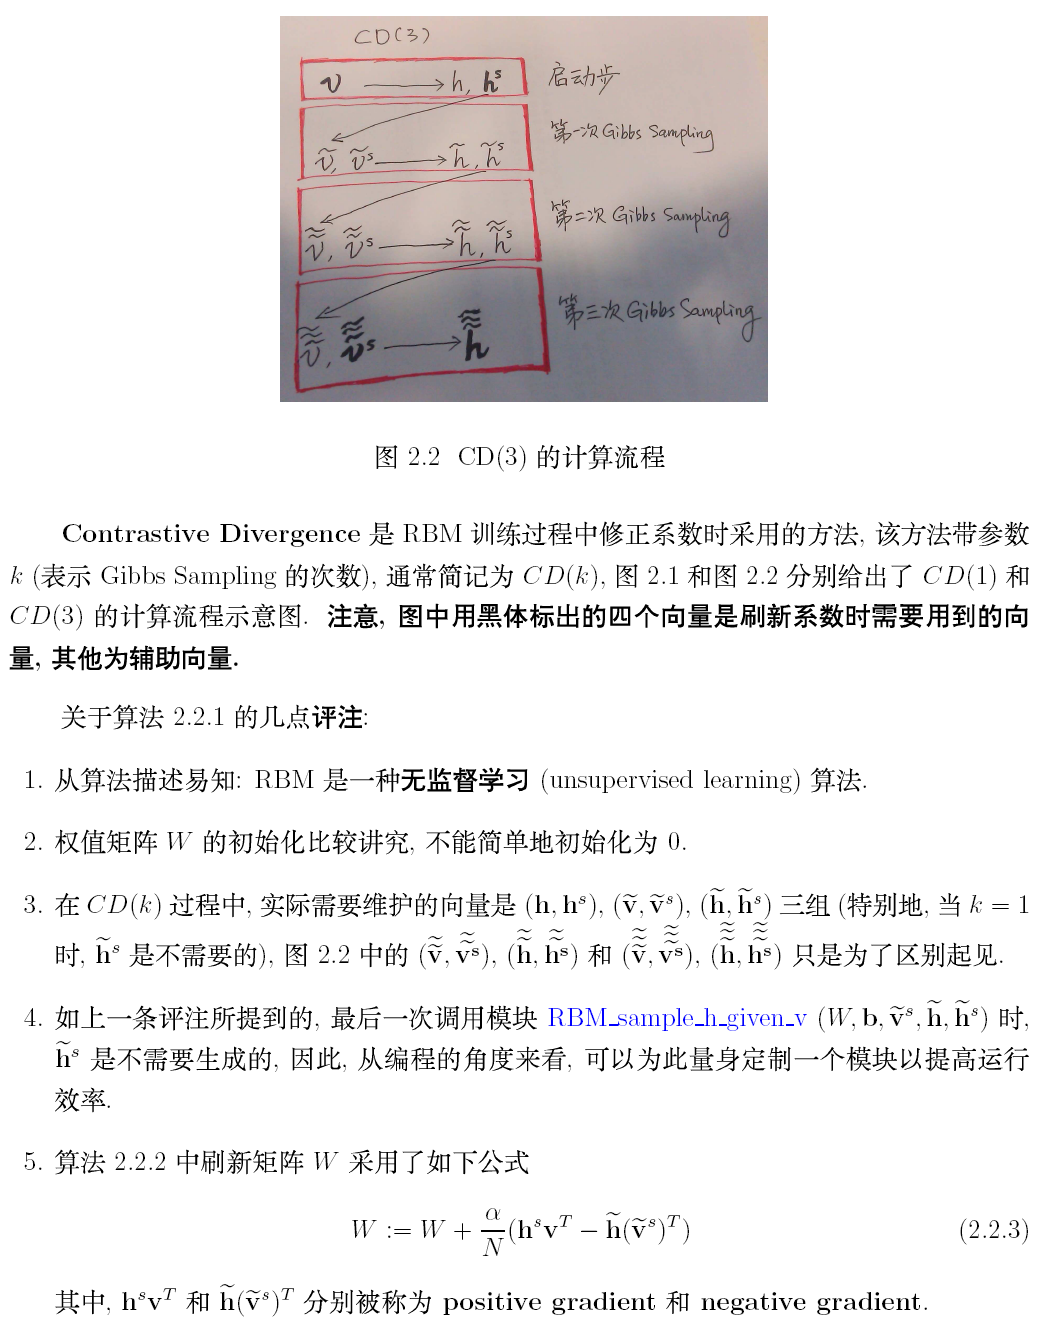 CD(3)
v → h, hˢ 启动步
第一次Gibbs Sampling
ṽ, ṽˢ → h̃, h̃ˢ
第二次 Gibbs Sampling
ṽ̃, ṽ̃ˢ → h̃̃, h̃̃ˢ
第三次Gibbs Sampling
ṽ̃̃, ṽ̃̃ˢ → h̃̃̃
图 2.2 CD(3) 的计算流程
Contrastive Divergence 是 RBM 训练过程中修正系数时采用的方法, 该方法带参数
k (表示 Gibbs Sampling 的次数), 通常简记为 CD(k), 图 2.1 和图 2.2 分别给出了 CD(1) 和
CD(3) 的计算流程示意图. 注意, 图中用黑体标出的四个向量是刷新系数时需要用到的向
量, 其他为辅助向量.
关于算法 2.2.1 的几点评注:
1. 从算法描述易知: RBM 是一种无监督学习 (unsupervised learning) 算法.
2. 权值矩阵 W 的初始化比较讲究, 不能简单地初始化为 0.
3. 在 CD(k) 过程中, 实际需要维护的向量是 (h, hˢ), (ṽ, ṽˢ), (h̃, h̃ˢ) 三组 (特别地, 当 k = 1
时, h̃ˢ 是不需要的), 图 2.2 中的 (ṽ̃, ṽ̃ˢ), (h̃̃, h̃̃ˢ) 和 (ṽ̃̃, ṽ̃̃ˢ), (h̃̃̃, h̃̃̃ˢ) 只是为了区别起见.
4. 如上一条评注所提到的, 最后一次调用模块 RBM_sample_h_given_v (W, b, ṽˢ, h̃, h̃ˢ) 时,
h̃ˢ 是不需要生成的, 因此, 从编程的角度来看, 可以为此量身定制一个模块以提高运行
效率.
5. 算法 2.2.2 中刷新矩阵 W 采用了如下公式
W := W + α/N (hˢvᵀ − h̃(ṽˢ)ᵀ) (2.2.3)
其中, hˢvᵀ 和 h̃(ṽˢ)ᵀ 分别被称为 positive gradient 和 negative gradient.